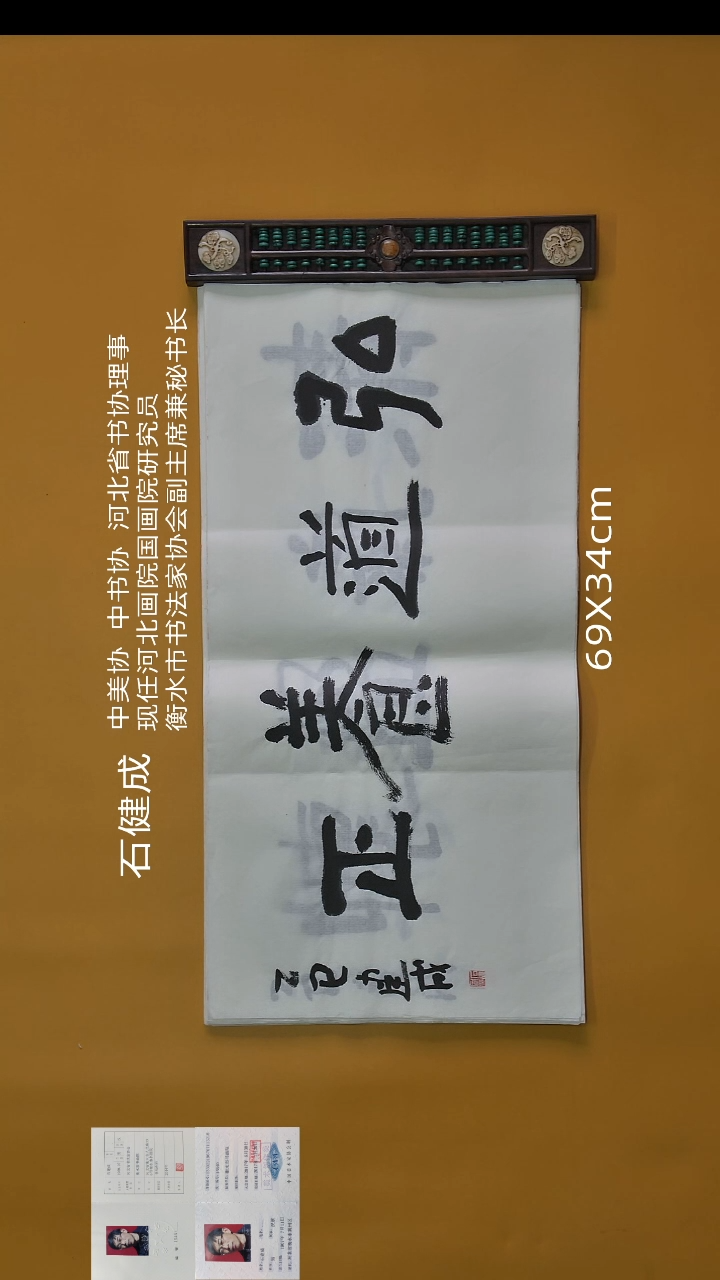 石健成
中美协 中书协 河北省书协理事
现任河北画院国画院研究员
衡水市书法家协会副主席兼秘书长
弘道養正
乙巳健成
69X34cm